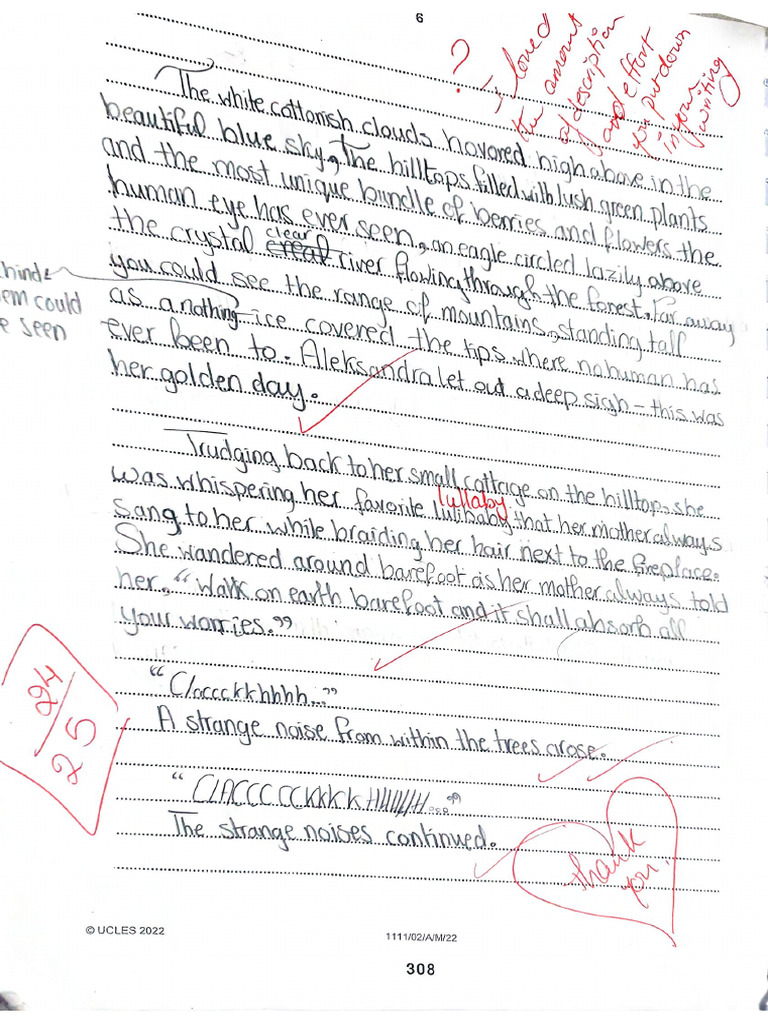 6
?
- I loved
the amount
of description
and effort
you put down
in your
writing
The white cottonish clouds hovored high above in the
beautiful blue sky, The hilltops filled with lush green plants
and the most unique bundle of berries and flowers the
human eye has ever seen, an eagle circled lazily above
the crystal clear river flowing through the forest. Far away
you could see the range of mountains, standing tall
as a nothing ice covered the tips, where no human has
ever been to. Aleksandra let out a deep sigh – this was
her golden day.
hinde
em could
e seen
Trudging back to her small cottage on the hilltop, she
was whispering her favorite lulibaby that her mother always
lullaby
sang to her while braiding her hair next to the fireplace.
She wandered around barefoot as her mother always told
her, "Walk on earth barefoot and it shall absorb all
your worries."
24
25
"Claccckkhhhh..."
A strange noise from within the trees arose.
"CLACCCCCKKKKHHHHH..."
The strange noises continued.
thank
you.
© UCLES 2022
1111/02/A/M/22
308